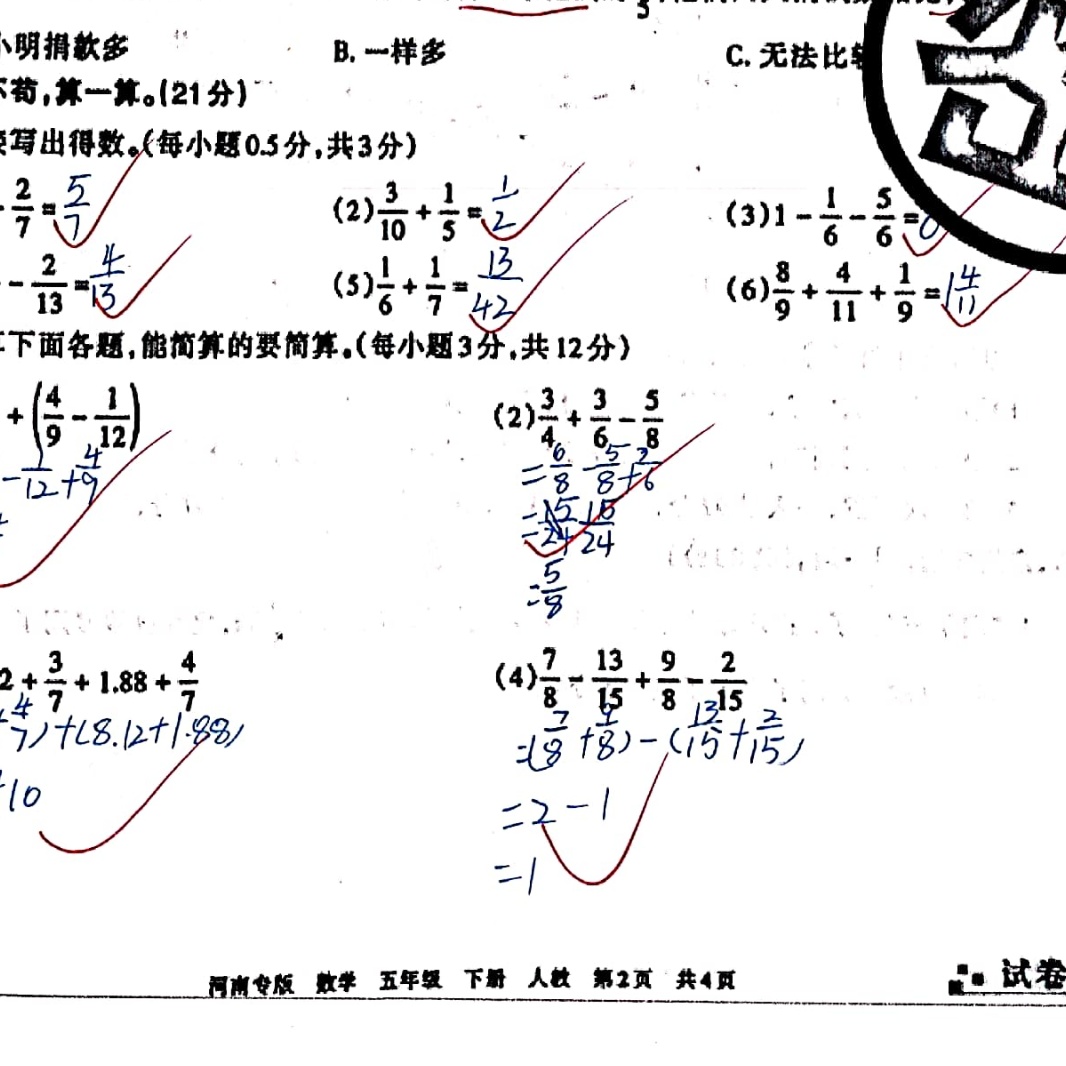 小明捐款多 B. 一样多 C. 无法比较
不苟,算一算。(21分)
写出得数。(每小题0.5分,共3分)
- 2/7 = 5/7 (2) 3/10 + 1/5 = 1/2 (3) 1 - 1/6 - 5/6 = 0
- 2/13 = 4/13 (5) 1/6 + 1/7 = 13/42 (6) 8/9 + 4/11 + 1/9 = 1 4/11
下面各题,能简算的要简算。(每小题3分,共12分)
+ (4/9 - 1/12) (2) 3/4 + 3/6 - 5/8
- 1/12 + 4/9 = 6/8 - 5/8 + 3/6
= 15/24 15/24
= 5/8
2 + 3/7 + 1.88 + 4/7 (4) 7/8 - 13/15 + 9/8 - 2/15
+ 4/7) + (8.12 + 1.88) = (7/8 + 9/8) - (13/15 + 2/15)
+10 = 2 - 1
= 1
河南专版 数学 五年级 下册 人教 第2页 共4页 试卷